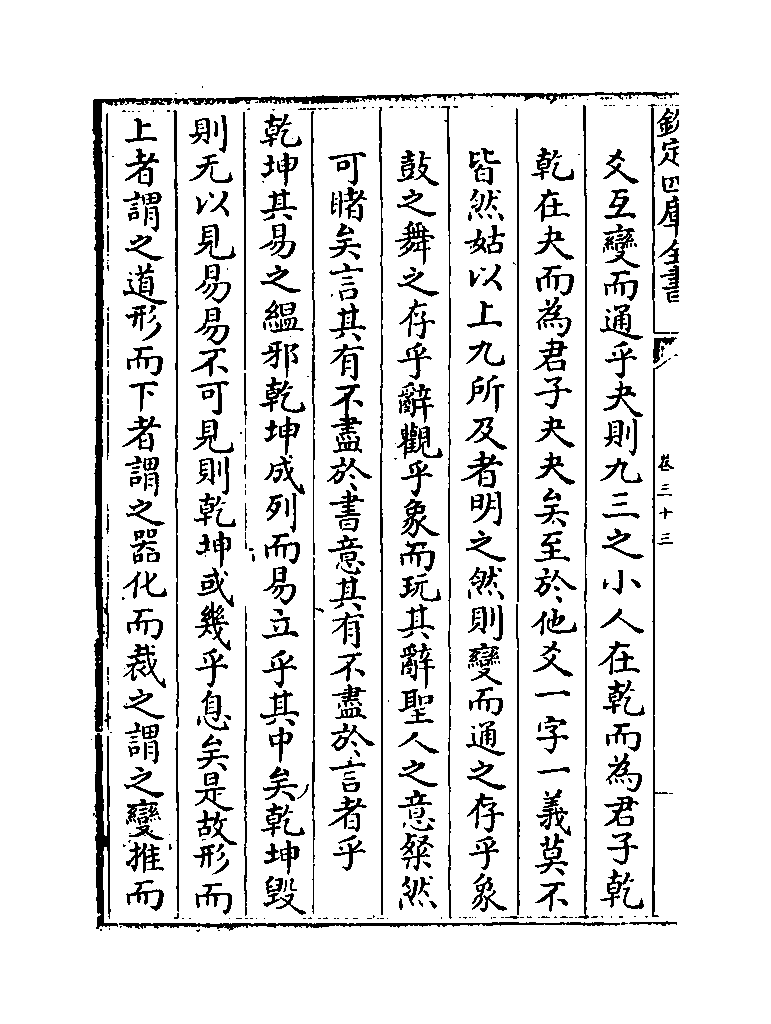 欽定四庫全書
卷三十三
爻互變而通乎夬則九三之小人在乾而為君子乾
乾在夬而為君子夬夬矣至於他爻一字一義莫不
皆然姑以上九所及者明之然則變而通之存乎象
鼓之舞之存乎辭觀乎象而玩其辭聖人之意粲然
可睹矣言其有不盡於書意其有不盡於言者乎
乾坤其易之緼邪乾坤成列而易立乎其中矣乾坤毀
則无以見易易不可見則乾坤或幾乎息矣是故形而
上者謂之道形而下者謂之器化而裁之謂之變推而